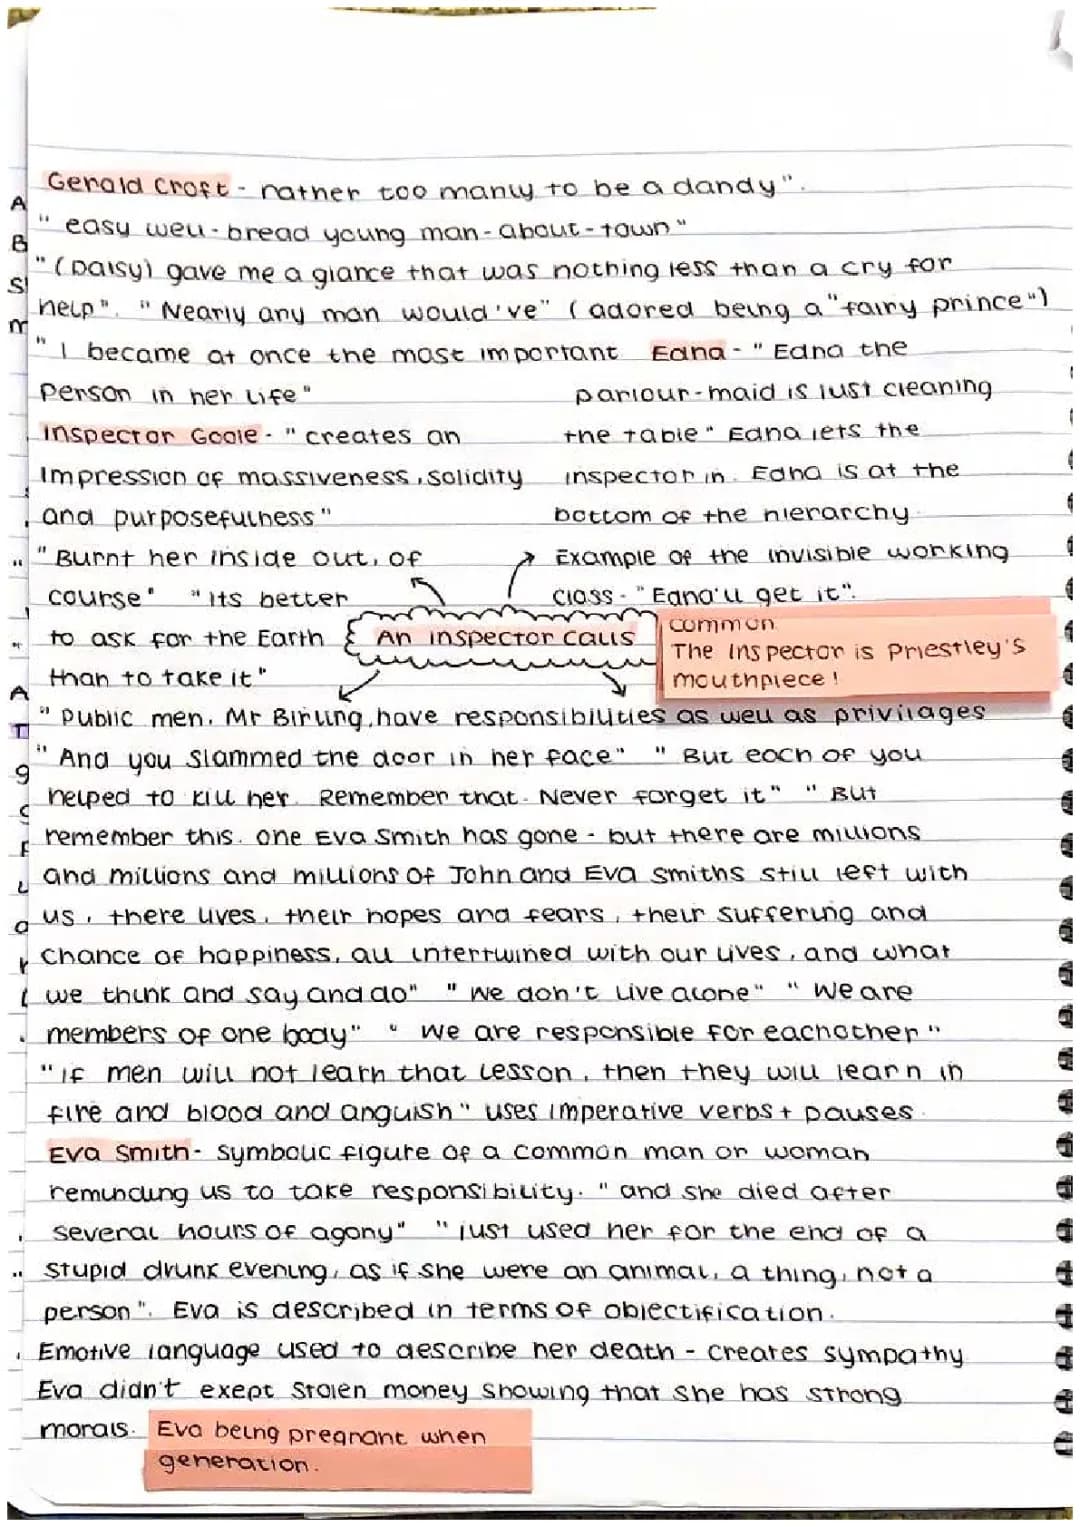 Gerald Croft - rather too manly to be a dandy".
" easy well-bread young man-about-town"
" (Daisy) gave me a glance that was nothing less than a cry for
help". " Nearly any man would've" (adored being a "fairy prince")
" I became at once the most important
person in her life"
Inspector Goole - " creates an
impression of massiveness, solidity
and purposefulness"
" Burnt her inside out, of
course" " Its better
to ask for the Earth
than to take it"
Edna - " Edna the
parlour-maid is just cleaning
the table" Edna lets the
inspector in. Edna is at the
bottom of the hierarchy.
Example of the invisible working
class - " Edna'll get it".
An inspector calls
common
The Inspector is Priestley's
mouthpiece!
" Public men, Mr Birling, have responsibilities as well as privilages
" And you slammed the door in her face" " But each of you
helped to kill her. Remember that. Never forget it" " But
remember this. one Eva Smith has gone - but there are millions
and millions and millions of John and Eva smiths still left with
us, there lives, their hopes and fears, their suffering and
chance of happiness, all intertwined with our lives, and what
we think and say and do" " we don't live alone" " We are
members of one body" " We are responsible for eachother"
" if men will not learn that lesson, then they will learn in
fire and blood and anguish" uses imperative verbs + pauses.
Eva Smith - Symbolic figure of a common man or woman
reminding us to take responsibility. " and she died after
several hours of agony" " just used her for the end of a
stupid drunk evening, as if she were an animal, a thing, not a
person". Eva is described in terms of objectification.
Emotive language used to describe her death - creates sympathy
Eva didn't exept stolen money showing that she has strong
morals.
Eva being pregnant when
generation.